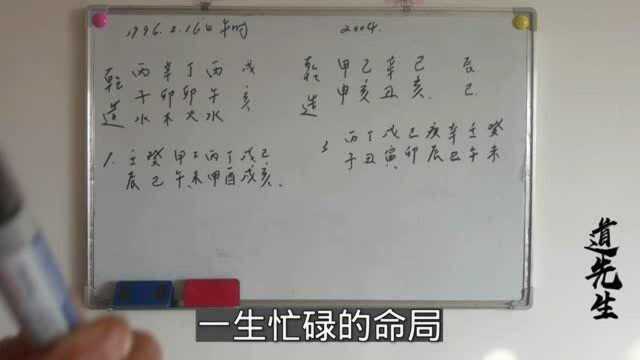 2004.
乾造
丙 辛 丁 丙 戌
子 卯 卯 午 亥
水 木 火 水
乾造
甲 乙 辛 己 辰
申 亥 丑 亥 巳
1. 壬 癸 甲 乙 丙 丁 戊 己
辰 巳 午 未 申 酉 戌 亥
3 丙 丁 戊 己 庚 辛 壬 癸
子 丑 寅 卯 辰 巳 午 未
道先生
一生忙碌的命局